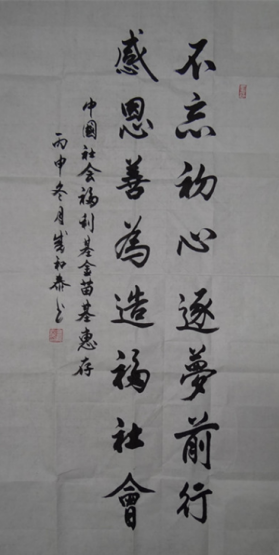 不忘初心逐夢前行
感恩善為造福社會
中國社会福利基金苗基惠存
丙申冬月